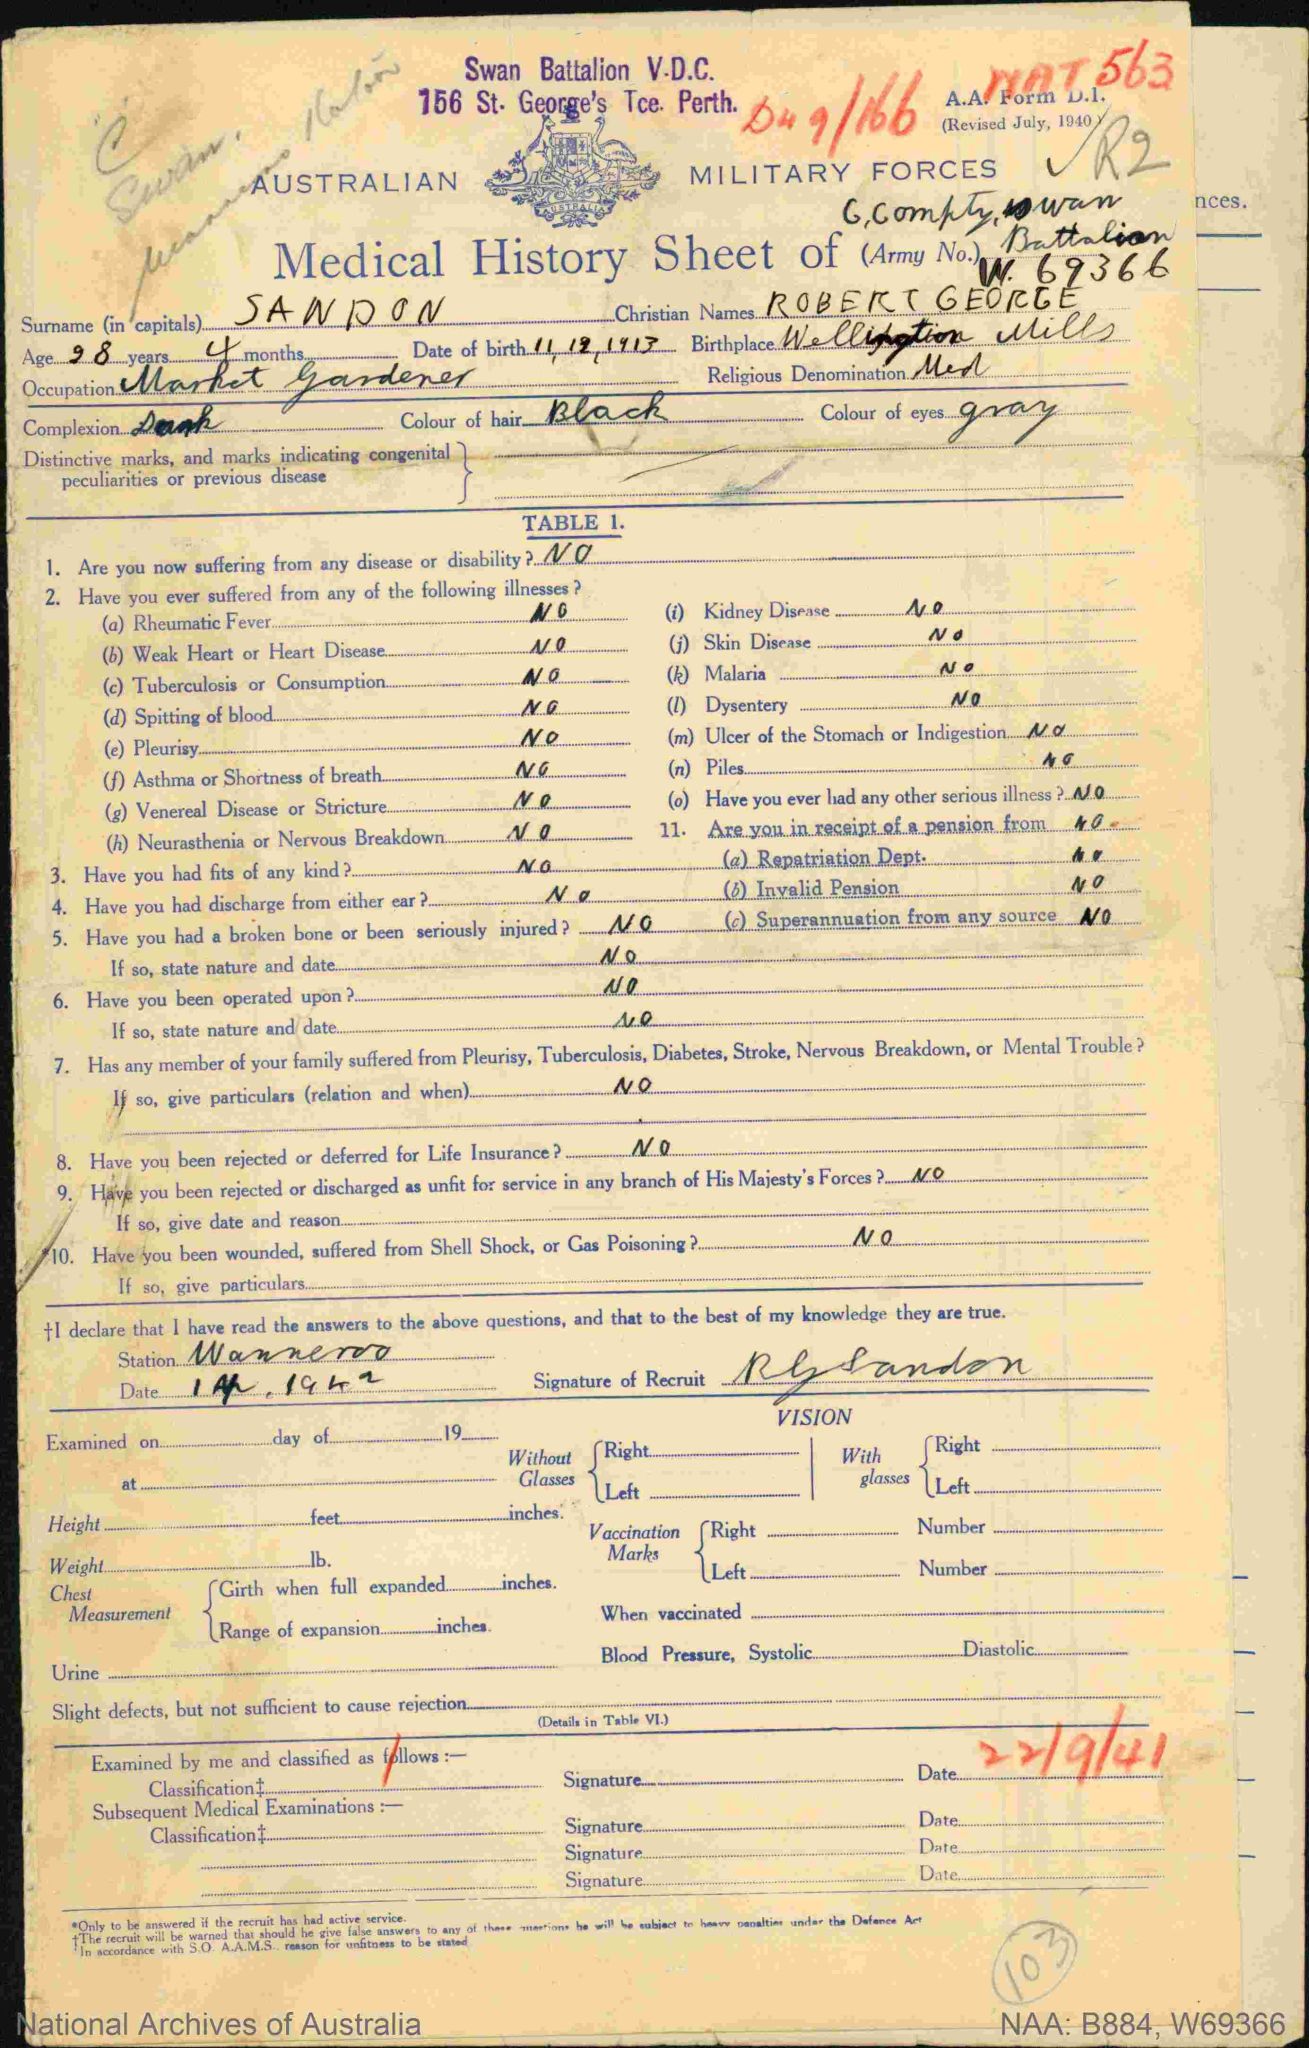 Swan Battalion V.D.C.
156 St. George's Tce. Perth.
MAT 563
D49/166
A.A. Form D.1.
(Revised July, 1940)
R2
C
Swan.
AUSTRALIAN MILITARY FORCES
AUSTRALIA
G, Compty, Swan
Battalion
Medical History Sheet of (Army No.) W. 69366
nces.
Surname (in capitals) SANDON Christian Names ROBERT GEORGE
Age 28 years 4 months Date of birth 11, 12, 1913 Birthplace Wellington Mills
Occupation Market Gardener Religious Denomination Med
Complexion Dark Colour of hair Black Colour of eyes gray
Distinctive marks, and marks indicating congenital
peculiarities or previous disease
TABLE 1.
1. Are you now suffering from any disease or disability? NO
2. Have you ever suffered from any of the following illnesses?
(a) Rheumatic Fever NO
(b) Weak Heart or Heart Disease NO
(c) Tuberculosis or Consumption NO
(d) Spitting of blood NO
(e) Pleurisy NO
(f) Asthma or Shortness of breath NO
(g) Venereal Disease or Stricture NO
(h) Neurasthenia or Nervous Breakdown NO
(i) Kidney Disease NO
(j) Skin Disease NO
(k) Malaria NO
(l) Dysentery NO
(m) Ulcer of the Stomach or Indigestion NO
(n) Piles NO
(o) Have you ever had any other serious illness? NO
11. Are you in receipt of a pension from NO
(a) Repatriation Dept. NO
(b) Invalid Pension NO
(c) Superannuation from any source NO
3. Have you had fits of any kind? NO
4. Have you had discharge from either ear? NO
5. Have you had a broken bone or been seriously injured? NO
If so, state nature and date NO
6. Have you been operated upon? NO
If so, state nature and date NO
7. Has any member of your family suffered from Pleurisy, Tuberculosis, Diabetes, Stroke, Nervous Breakdown, or Mental Trouble?
If so, give particulars (relation and when) NO
8. Have you been rejected or deferred for Life Insurance? NO
9. Have you been rejected or discharged as unfit for service in any branch of His Majesty's Forces? NO
If so, give date and reason
*10. Have you been wounded, suffered from Shell Shock, or Gas Poisoning? NO
If so, give particulars
†I declare that I have read the answers to the above questions, and that to the best of my knowledge they are true.
Station Wanneroo
Date 1 Ap. 1942 Signature of Recruit R G Sandon
VISION
Examined on day of 19
at
Without Glasses Right Left
With glasses Right Left
Height feet inches.
Weight lb.
Vaccination Marks Right Number
Left Number
Chest Measurement Girth when full expanded inches.
Range of expansion inches.
When vaccinated
Blood Pressure, Systolic Diastolic
Urine
Slight defects, but not sufficient to cause rejection
(Details in Table VI.)
Examined by me and classified as follows :—
Classification‡ Signature Date 22/9/41
Subsequent Medical Examinations :—
Classification‡ Signature Date
Signature Date
Signature Date
*Only to be answered if the recruit has had active service.
†The recruit will be warned that should he give false answers to any of these questions he will be subject to heavy penalties under the Defence Act
‡In accordance with S.O. A.A.M.S. reason for unfitness to be stated
103
National Archives of Australia
NAA: B884, W69366